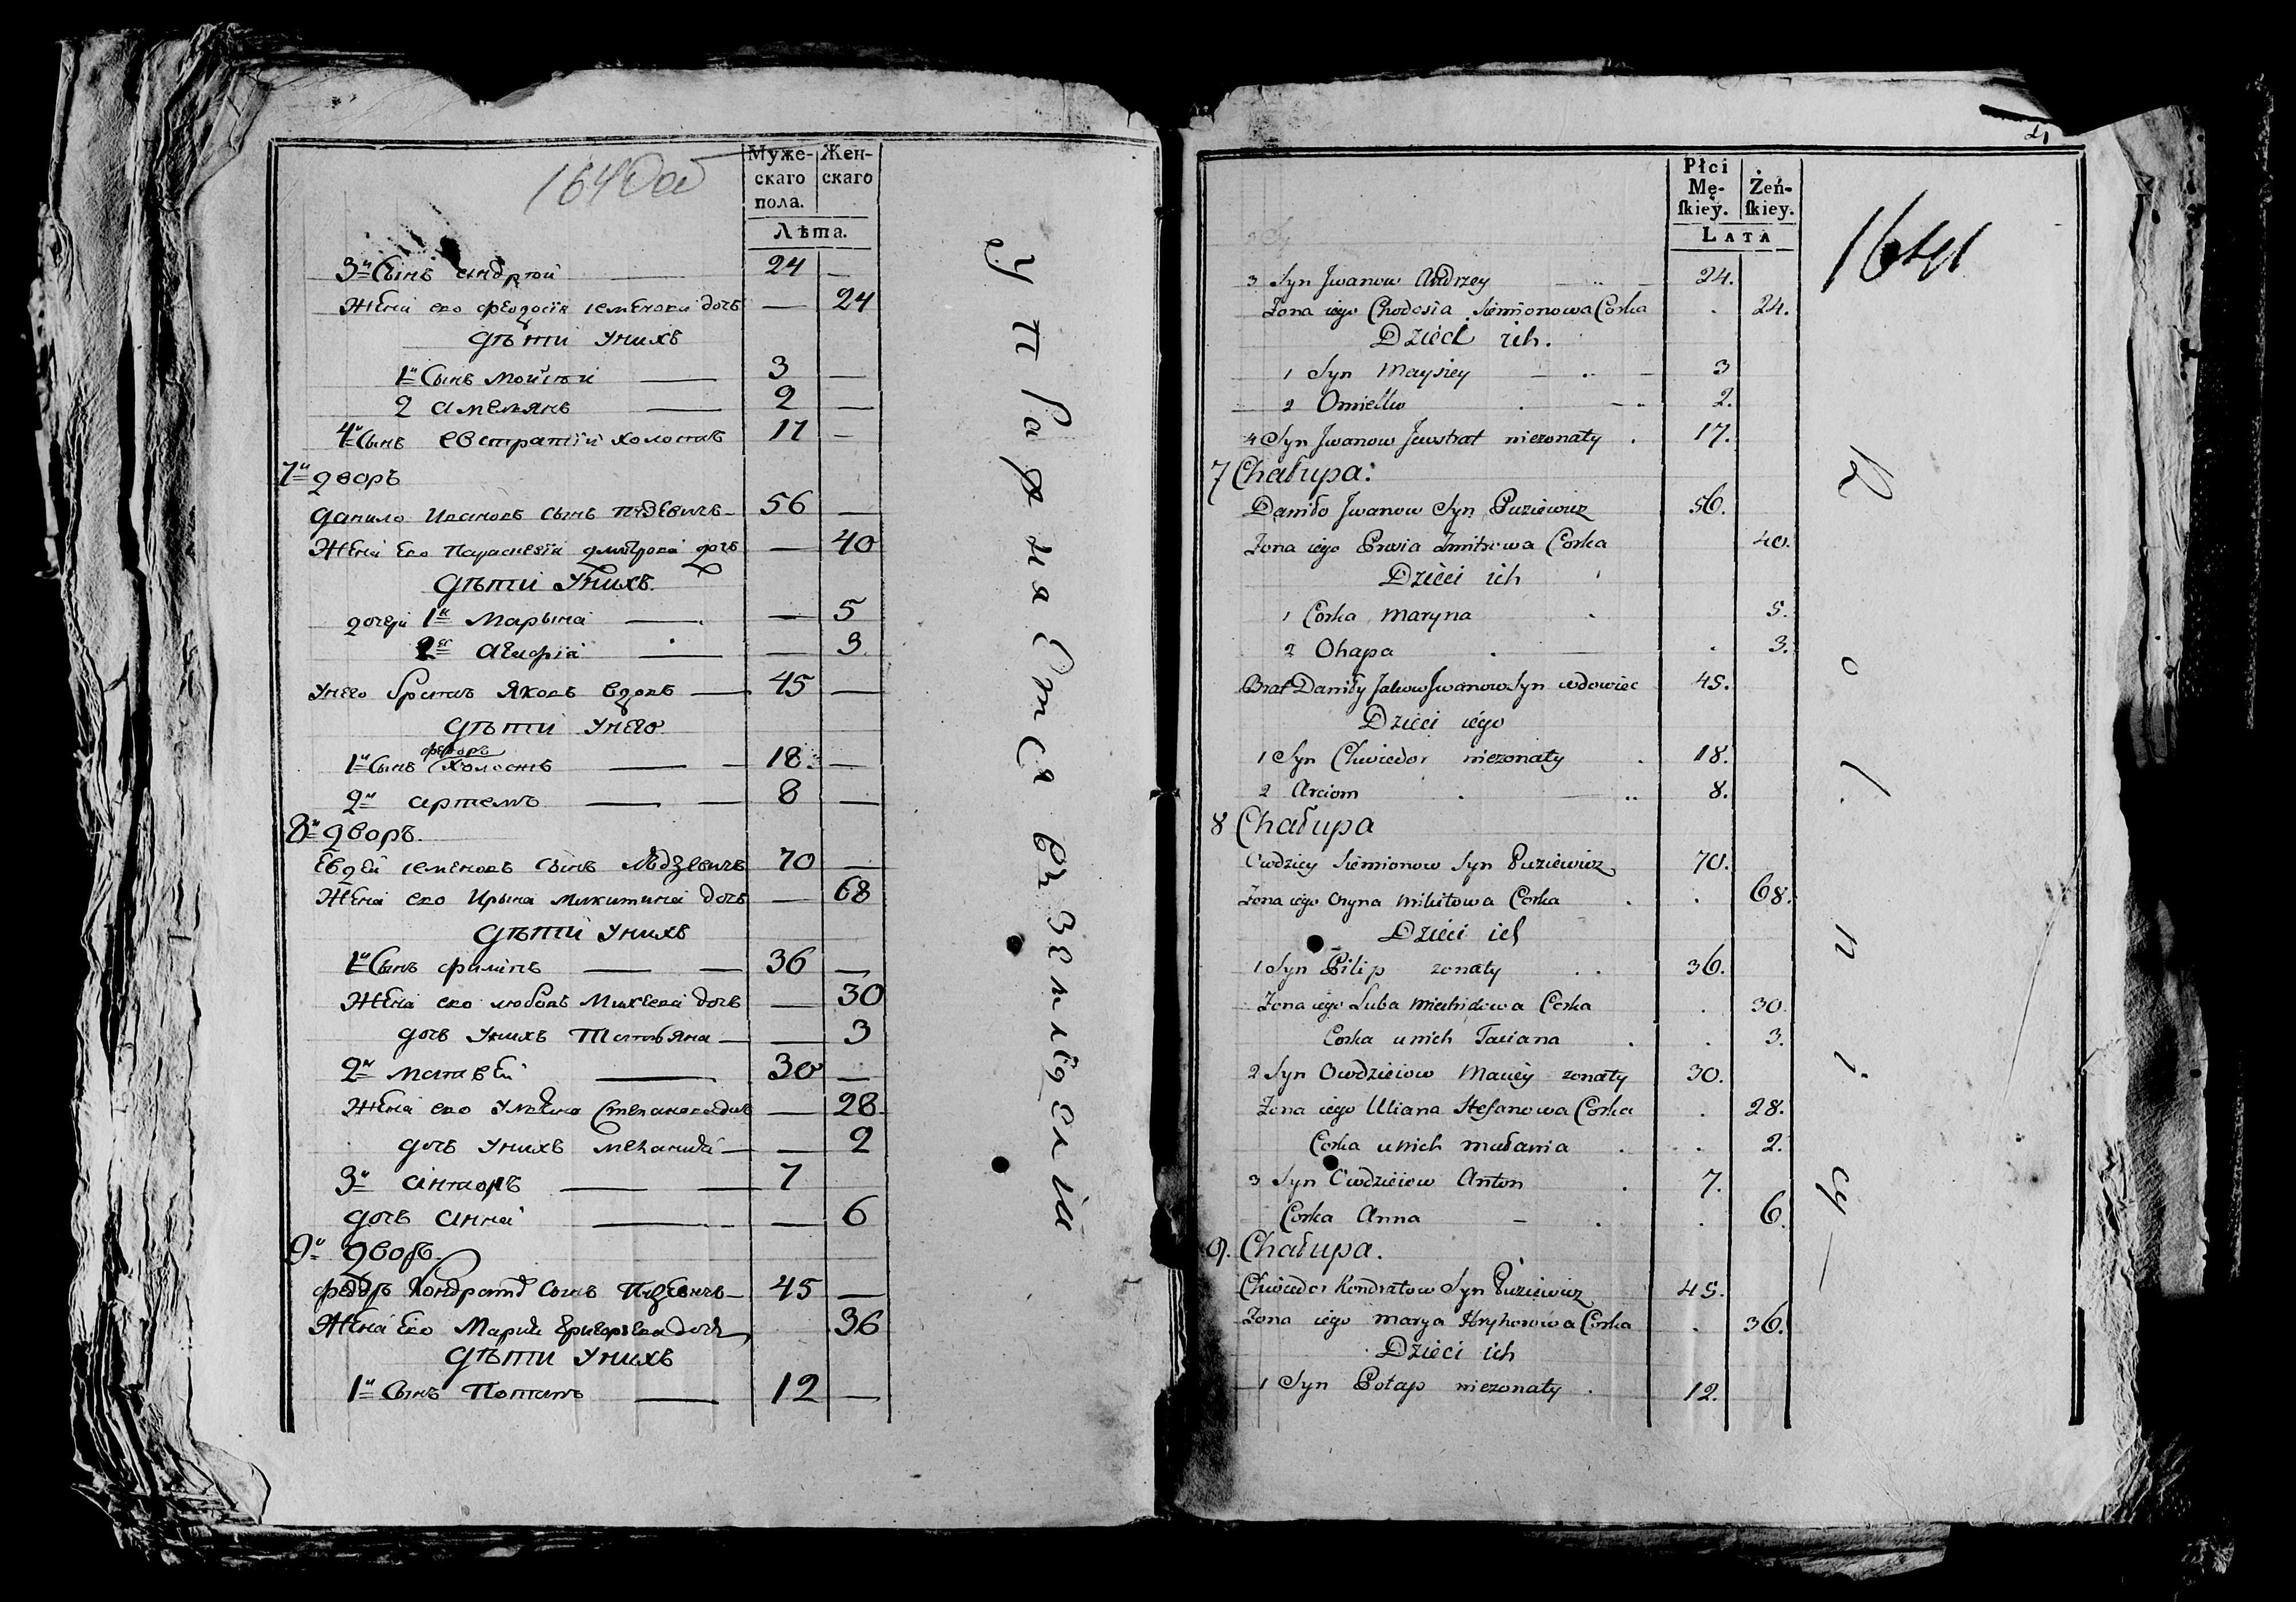 164 об
Муже-
скаго
пола.
Жен-
скаго
Лѣта.
3й Сынъ андрей 24 —
Жена его феодосія семенова дочь — 24
Дѣти Унихъ
1й Сынъ мойсей 3 —
2 амелянъ 2 —
4й Сынъ евстратій холостъ 17 —
7й дворъ
данило Ивановъ сынъ пузевичъ 56 —
Жена Его Параскевія дмитрова дочь — 40
Дѣти Унихъ.
дочери 1я Марьяна — 5
2я агафія — 3
Унего братъ Яковъ вдовъ 45 —
Дѣти Унего
федоръ
1й Сынъ холостъ 18 —
2й артемъ 8 —
8й дворъ.
Евдей семеновъ сынъ пузевичъ 70 —
Жена его Ирына микитина дочь — 68
Дѣти Унихъ
1й Сынъ филипъ 36 —
Жена его любовь Михеева дочь — 30
дочь Унихъ Татьяна — 3
2й матвей 30 —
Жена его Ульяна Степанова дочь — 28
дочь Унихъ меланиа — 2
3й антонъ 7
дочь анна — 6
9й дворъ.
федоръ Кондратов Сынъ Пузевичъ 45 —
Жена Его Мария Григорьева дочь 36
Дѣти Унихъ
1й Сынъ Потапъ 12 —
Управляется въ земледелии
41
1641
Płci
Mę-
ſkiey.
Żeń-
ſkiey.
LATA
3 Syn Jwanow Andrzey 24.
Zona iego Chodosia Siemionowa Corka 24.
Dzieci ich.
1 Syn Maysiey 3
2 Omielko 2.
4 Syn Jwanow Jewstrat niezonaty 17.
7 Chałupa:
Daniło Jwanow Syn Puziewicz 56.
Zona iego Prosia Dmitrowa Corka 40.
Dzieci ich
1 Corka Maryna 5.
2 Ohapa 3.
Brat Daniły Jakow Jwanow Syn wdowiec 45.
Dzieci iego
1 Syn Chwiedor niezonaty 18.
2 Arciom 8.
8 Chałupa
Owdziey Siemionow Syn Puziewicz 70.
Zona iego Oryna Mikitowa Corka 68.
Dzieci ich
1 Syn Pilip zonaty 36.
Zona iego Luba Miechidowa Corka 30.
Corka u nich Taciana 3.
2 Syn Owdzieiow Maciey zonaty 30.
Zona iego Uliana Stefanowa Corka 28.
Corka u nich Małania 2.
3 Syn Owdzieiow Anton 7.
Corka Anna 6.
9. Chałupa.
Chwiedor Kondratow Syn Puziewicz 45.
Zona iego Marya Hryhorowa Corka 36.
Dzieci ich
1 Syn Potap niezonaty 12.
Rolnicy —